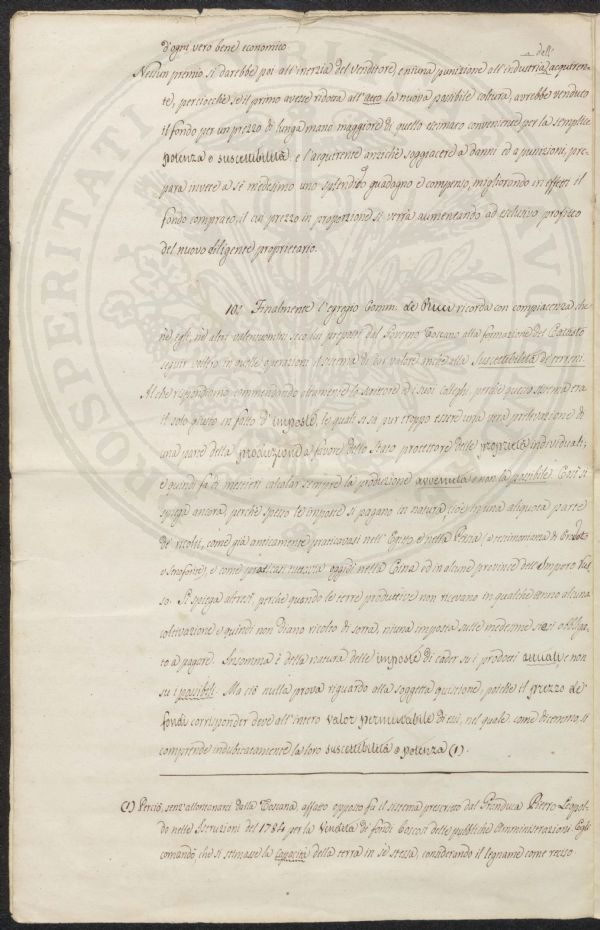 d'ogni vero bene economico.
dell'
Nessun premio si darebbe poi all'inerzia del venditore, e niuna punizione all'industria acquiren-
te, perciocchè se il primo avesse ridotta all'atto la nuova possibile coltura, avrebbe venduto
il fondo per un prezzo di lunga mano maggiore di quello stimato conveniente per la semplice
potenza o suscettibilità e l'acquirente anzichè soggiacere a danni ed a punizioni, pre-
para invece a sè medesimo uno splendido guadagno e compenso, migliorando in effetti il
fondo comprato, il cui prezzo in proporzione si verrà aumentando ad esclusivo profitto
del nuovo diligente proprietario.
10.° Finalmente l'egregio Comm. de Ricci ricorda con compiacenza che
nè egli, nè altri valentuomini seco lui preposti dal Governo Toscano alla formazione del Catasto
seguir vollero in quelle operazioni il sistema di dar valore anche alla Suscettibilità de' terreni.
Al che rispondiamo commendando altamente lo scrittore ed i suoi colleghi, perchè questo sistema era
il solo giusto in fatto d'imposte, le quali si sa pur troppo essere una vera prelevazione di
una parte della produzione a favore dello Stato protettore delle proprietà individuali;
e quindi fa di mestieri calcolar sempre la produzione avvenuta e non la possibile. Così si
spiega ancora perchè spesso le imposte si pagano in natura, cioè in una aliquota parte
de' ricolti, come già anticamente praticavasi nell'Egitto e nella Persia (a testimonianza di Erodoto
e Senofonte), e come praticasi tuttavia oggidì nella Cina ed in alcune province dell'Impero Rus-
so. Si spiega altresì, perchè quando le terre produttive non ricevano in qualche anno alcuna
coltivazione e quindi non diano ricolto di sorta, niuna imposta sulle medesime siesi obbliga-
to a pagare. Insomma è della natura delle imposte di cader su i prodotti attuali e non
su i possibili. Ma ciò nulla prova riguardo alla soggetta quistione, poichè il prezzo de'
fondi corrisponder deve all'intero valor permutabile di essi, nel quale come dicemmo, si
comprende indubitatamente la loro suscettibilità o potenza (1).
(1) Perciò, senz'allontanarci dalla Toscana, affatto opposto fu il sistema prescritto dal Granduca Pietro Leopol-
do nelle Istruzioni del 1784 per la vendita di fondi boscosi delle pubbliche Amministrazioni. Egli
comandò che si stimasse la capacità della terra in sè stessa, considerando il legname come reciso